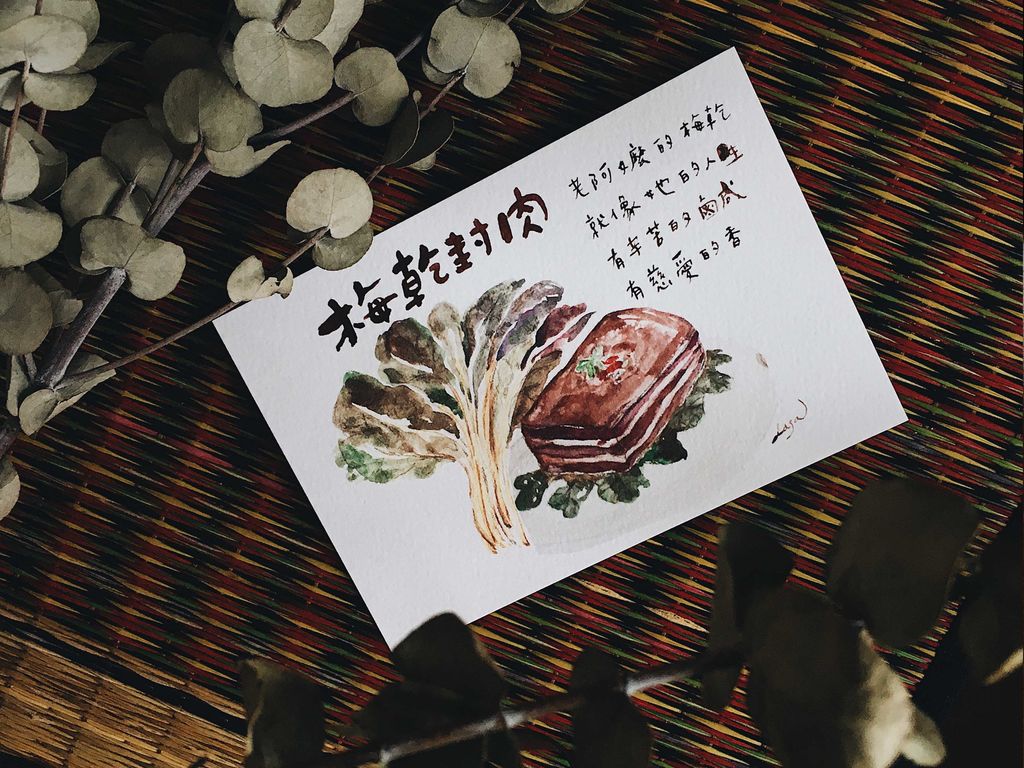 梅乾封肉
老阿嬤的梅乾
就像她的人生
有辛苦的鹵咸
有慈愛的香